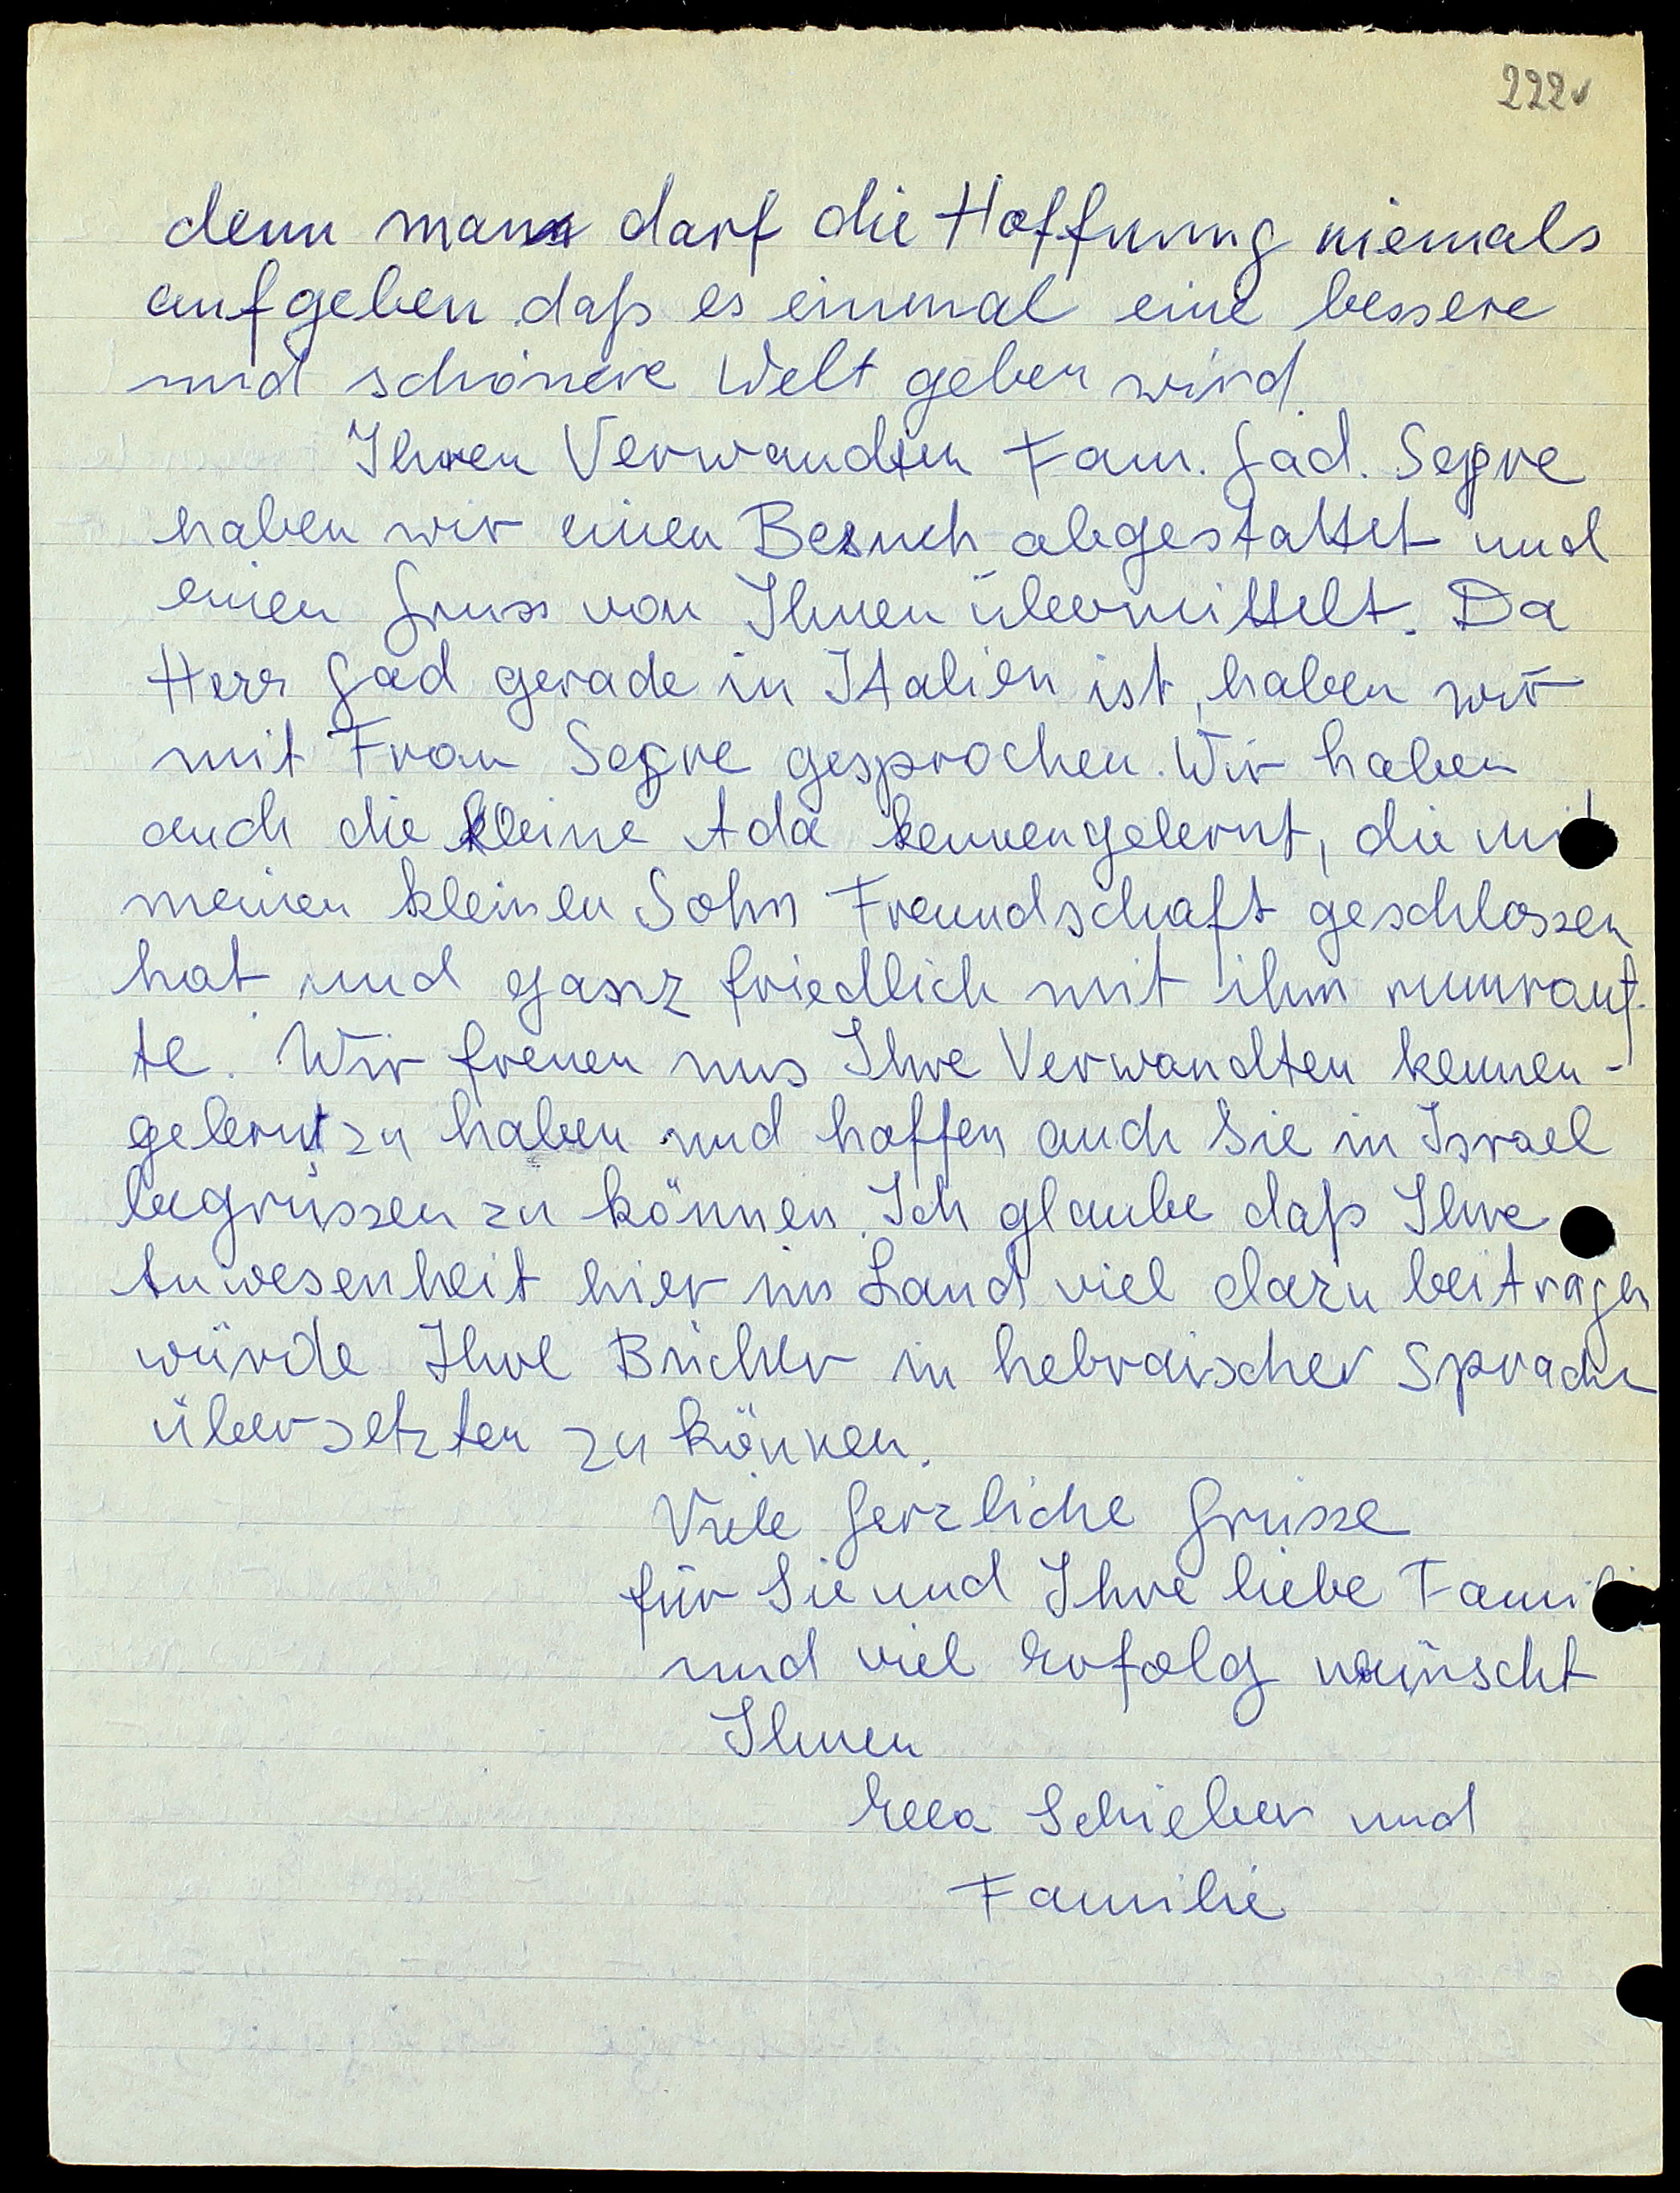 222v
denn man darf die Hoffnung niemals
aufgeben daß es einmal eine bessere
und schönere Welt geben wird.
Ihren Verwandten Fam. Gad. Segre
haben wir einen Besuch abgestattet und
einen Gruss von Ihnen übermittelt. Da
Herr Gad gerade in Italien ist, haben wir
mit Frau Segre gesprochen. Wir haben
auch die kleine Ada kennengelernt, die mit
meinen kleinen Sohn Freundschaft geschlossen
hat und ganz friedlich mit ihm rumrauf-
te. Wir freuen uns Ihre Verwandten kennen-
gelernt zu haben und hoffen auch Sie in Israel
begrüssen zu können. Ich glaube daß Ihre
Anwesenheit hier im Land viel dazu beitragen
würde Ihre Bücher in hebraischer Sprache
übersetzten zu können.
Viele herzliche Grüsse
für Sie und Ihre liebe Famili
und viel Erfolg wünscht
Ihnen
Ella Schieber und
Familie